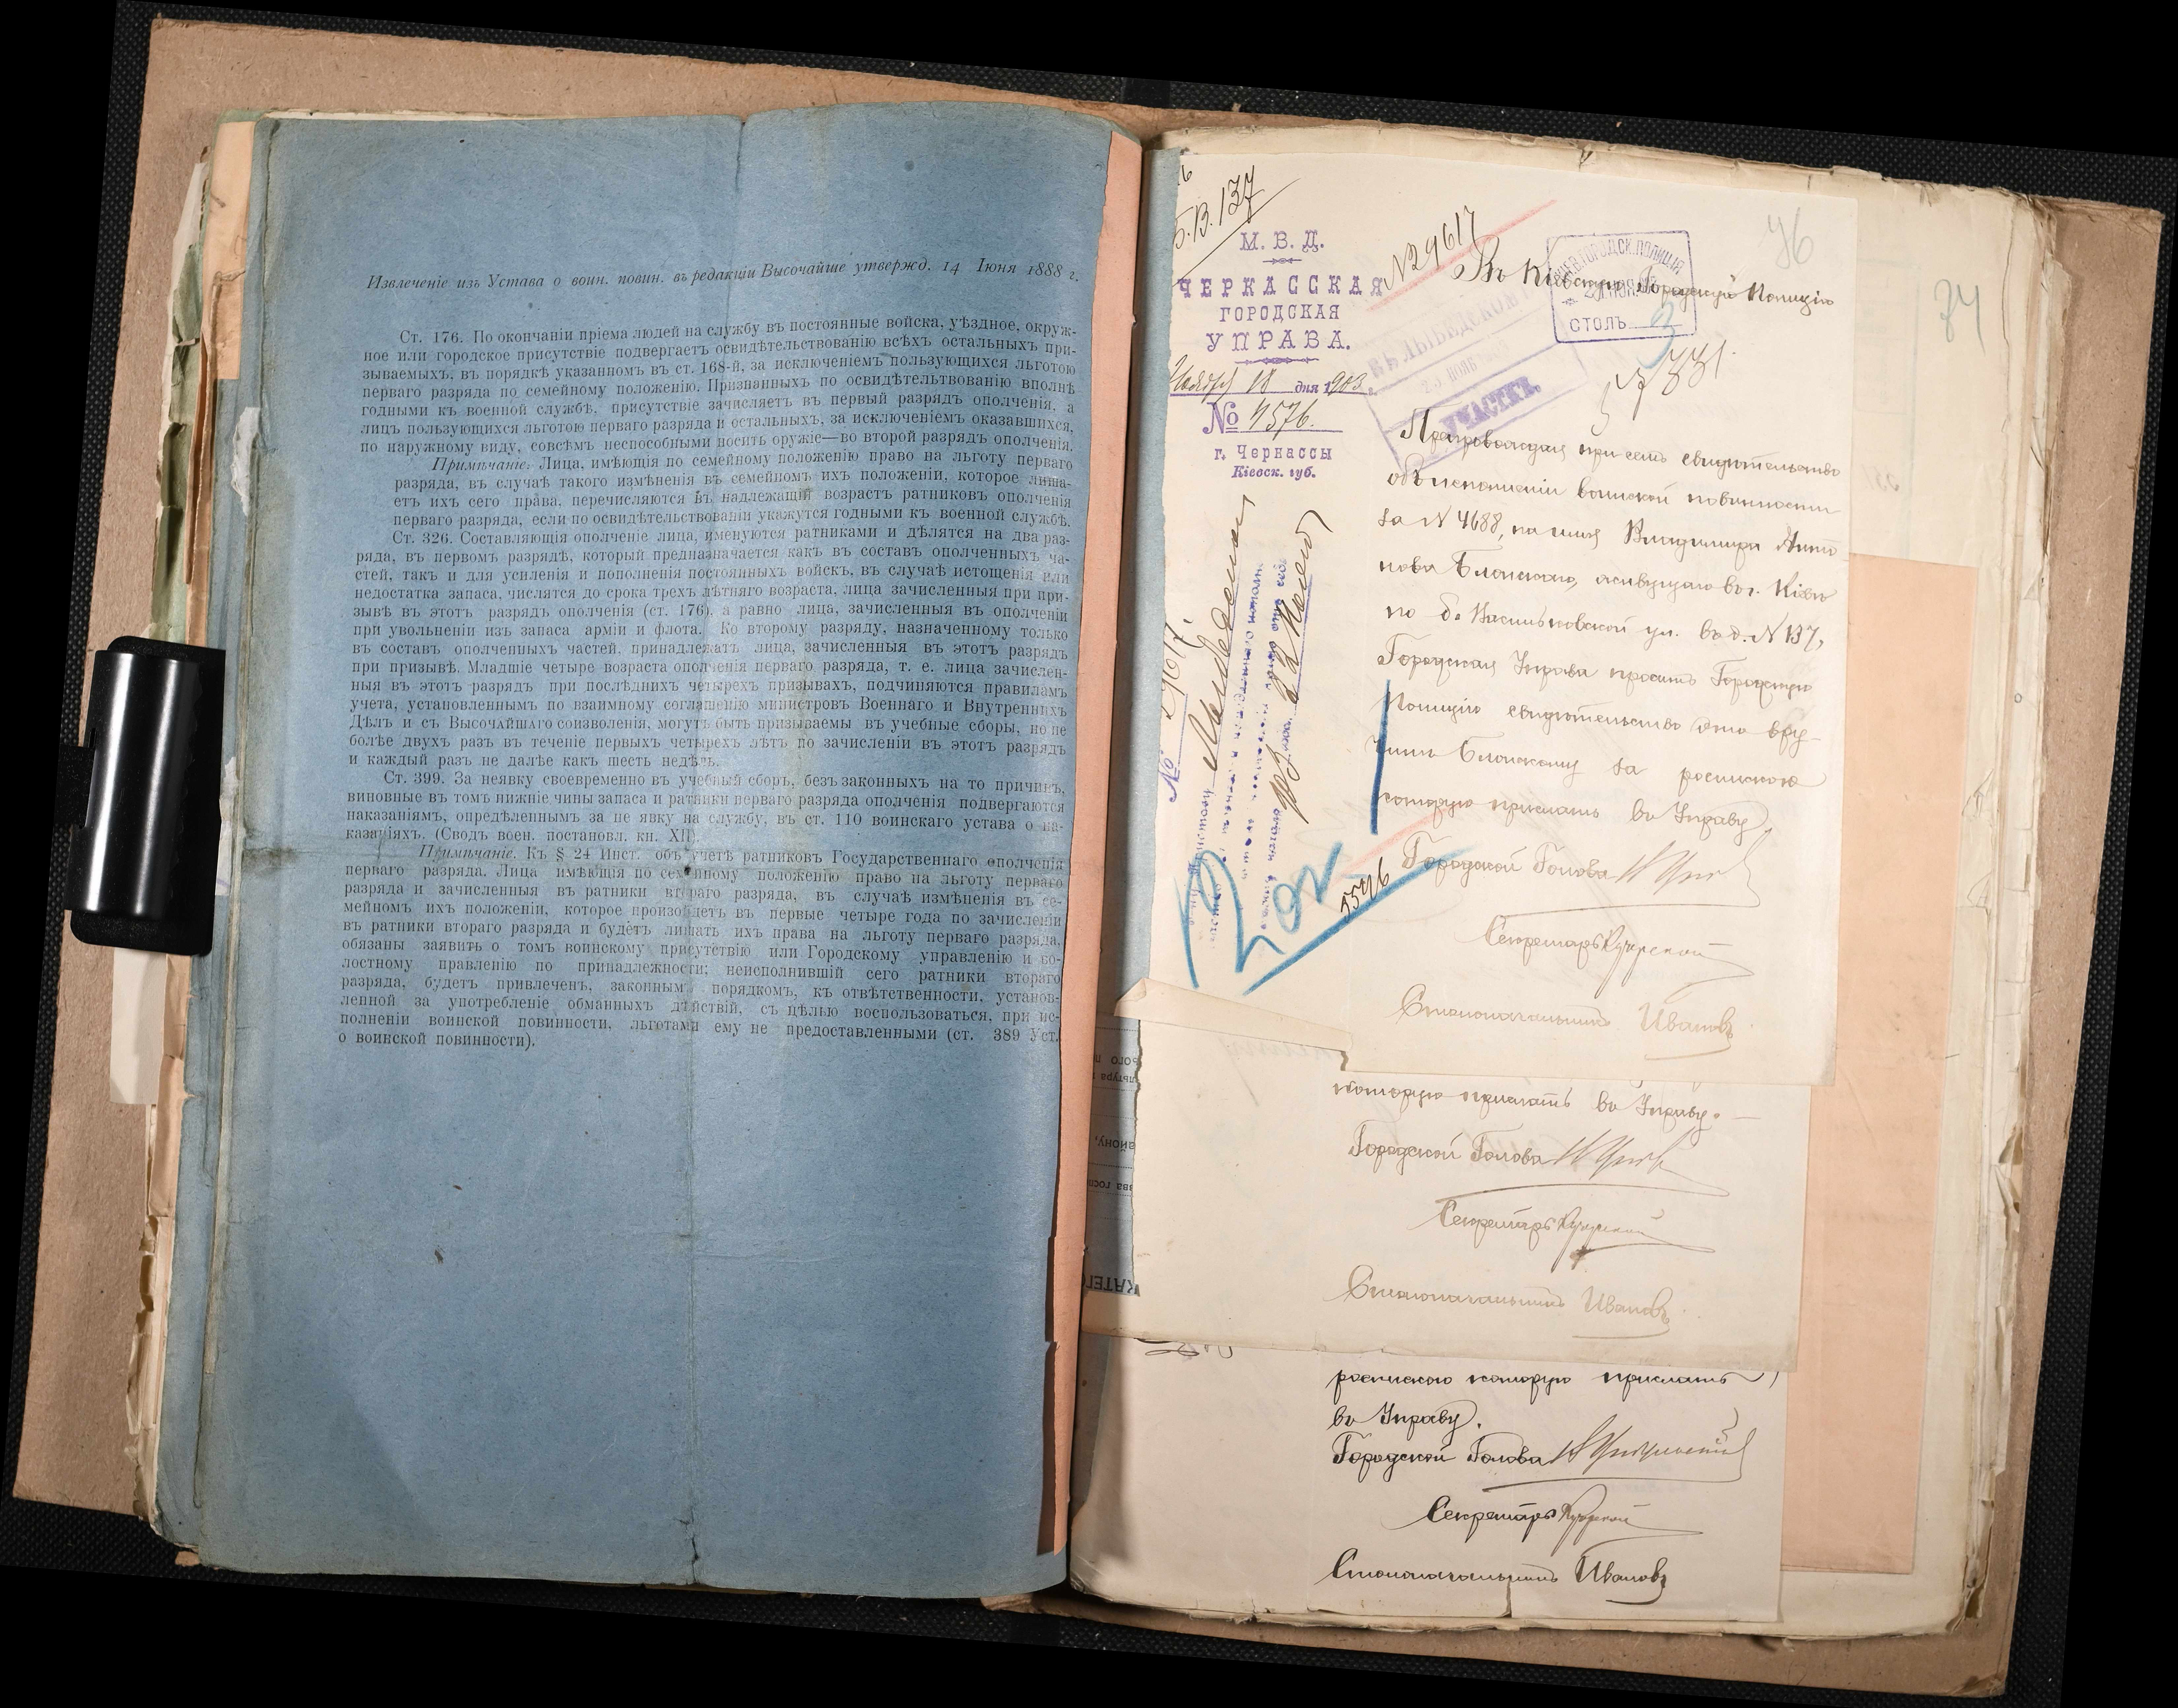 Извлеченіе изъ Устава о воин. повин. въ редакціи Высочайше утвержд. 14 Іюня 1888 г.
Ст. 176. По окончаніи пріема людей на службу въ постоянные войска, уѣздное, окруж-
ное или городское присутствіе подвергаетъ освидѣтельствованію всѣхъ остальныхъ при-
зываемыхъ, въ порядкѣ указанномъ въ ст. 168-й, за исключеніемъ пользующихся льготою
перваго разряда по семейному положенію. Признанныхъ по освидѣтельтвованію вполнѣ
годными къ военной службѣ, присутствіе зачисляетъ въ первый разрядъ ополченія, а
лицъ пользующихся льготою перваго разряда и остальныхъ, за исключеніемъ оказавшихся,
по наружному виду, совсѣмъ неспособными носить оружіе—во второй разрядъ ополченія.
Примѣчаніе: Лица, имѣющія по семейному положенію право на льготу перваго
разряда, въ случаѣ такого измѣненія въ семейномъ ихъ положеніи, которое лиша-
етъ ихъ сего права, перечисляются въ надлежащій возрастъ ратниковъ ополченія
перваго разряда, если по освидѣтельствованіи укажутся годными къ военной службѣ.
Ст. 326. Составляющія ополченіе лица, именуются ратниками и дѣлятся на два раз-
ряда, въ первомъ разрядѣ, который предназначается какъ въ составъ ополченныхъ ча-
стей, такъ и для усиленія и пополненія постоянныхъ войскъ, въ случаѣ истощенія или
недостатка запаса, числятся до срока трехъ лѣтняго возраста, лица зачисленныя при при-
зывѣ въ этотъ разрядъ ополченія (ст. 176), а равно лица, зачисленныя въ ополченіи
при увольненіи изъ запаса арміи и флота. Ко второму разряду, назначенному только
въ составъ ополченныхъ частей, принадлежатъ лица, зачисленныя въ этотъ разрядъ
при призывѣ. Младшіе четыре возраста ополченія перваго разряда, т. е. лица зачислен-
ныя въ этотъ разрядъ при послѣднихъ четырехъ призывахъ, подчиняются правиламъ
учета, установленнымъ по взаимному соглашенію министровъ Военнаго и Внутреннихъ
Дѣлъ и съ Высочайшаго соизволенія, могутъ быть призываемы въ учебные сборы, но не
болѣе двухъ разъ въ теченіе первыхъ четырехъ лѣтъ по зачисленіи въ этотъ разрядъ
и каждый разъ не далѣе какъ шесть недѣль.
Ст. 399. За неявку своевременно въ учебный сборъ, безъ законныхъ на то причинъ,
виновные въ томъ нижніе чины запаса и ратники перваго разряда ополченія подвергаются
наказаніямъ, опредѣленнымъ за не явку на службу, въ ст. 110 воинскаго устава о на-
казаніяхъ. (Сводъ воен. постановл. кн. XII).
Примѣчаніе. Къ § 24 Инст. объ учетѣ ратниковъ Государственнаго ополченія
перваго разряда. Лица имѣющія по семейному положенію право на льготу перваго
разряда и зачисленныя въ ратники втораго разряда, въ случаѣ измѣненія въ се-
мейномъ ихъ положеніи, которое произойдетъ въ первые четыре года по зачисленіи
въ ратники втораго разряда и будетъ лишать ихъ права на льготу перваго разряда,
обязаны заявить о томъ воинскому присутствію или Городскому управленію и во-
лостному правленію по принадлежности; неисполнившій сего ратники втораго
разряда, будетъ привлеченъ, законнымъ порядкомъ, къ отвѣтственности, установ-
ленной за употребленіе обманныхъ дѣйствій, съ цѣлью воспользоваться, при ис-
полненіи воинской повинности, льготами ему не предоставленными (ст. 389 Уст.
о воинской повинности).
Б.В. 137
М. В. Д.
ЧЕРКАССКАЯ
ГОРОДСКАЯ
УПРАВА.
Ноября 18 дня 1903 г.
№ 4576.
г. Черкассы
Кіевск. губ.
N 29617
76
74
ГОРОДСК. ПОЛИЦІЯ
СТОЛЪ 3
Въ Кіевскую Городскую Полицію
ЛЫБЕДСКОЙ
УЧАСТКЪ
Препровождая при семъ свидѣтельство
объ исполненіи воинской повинности
за N 4688, на имя Владиміра Анто
нова Блонскаго, живущаго въ г. Кіевѣ
по б. Васильковской ул. въ д. N 137,
Городская Управа проситъ Городскую
Полицію свидѣтельство это вру-
чить Блонскому за роспискою
которую прислать въ Управу
Городской Голова
Секретарь
Столоначальникъ Ивановъ
5576
которую прислать въ Управу.
Городской Голова
Секретарь
Столоначальникъ Ивановъ
роспискою которую прислать
въ Управу.
Городской Голова
Секретарь
Столоначальникъ Ивановъ